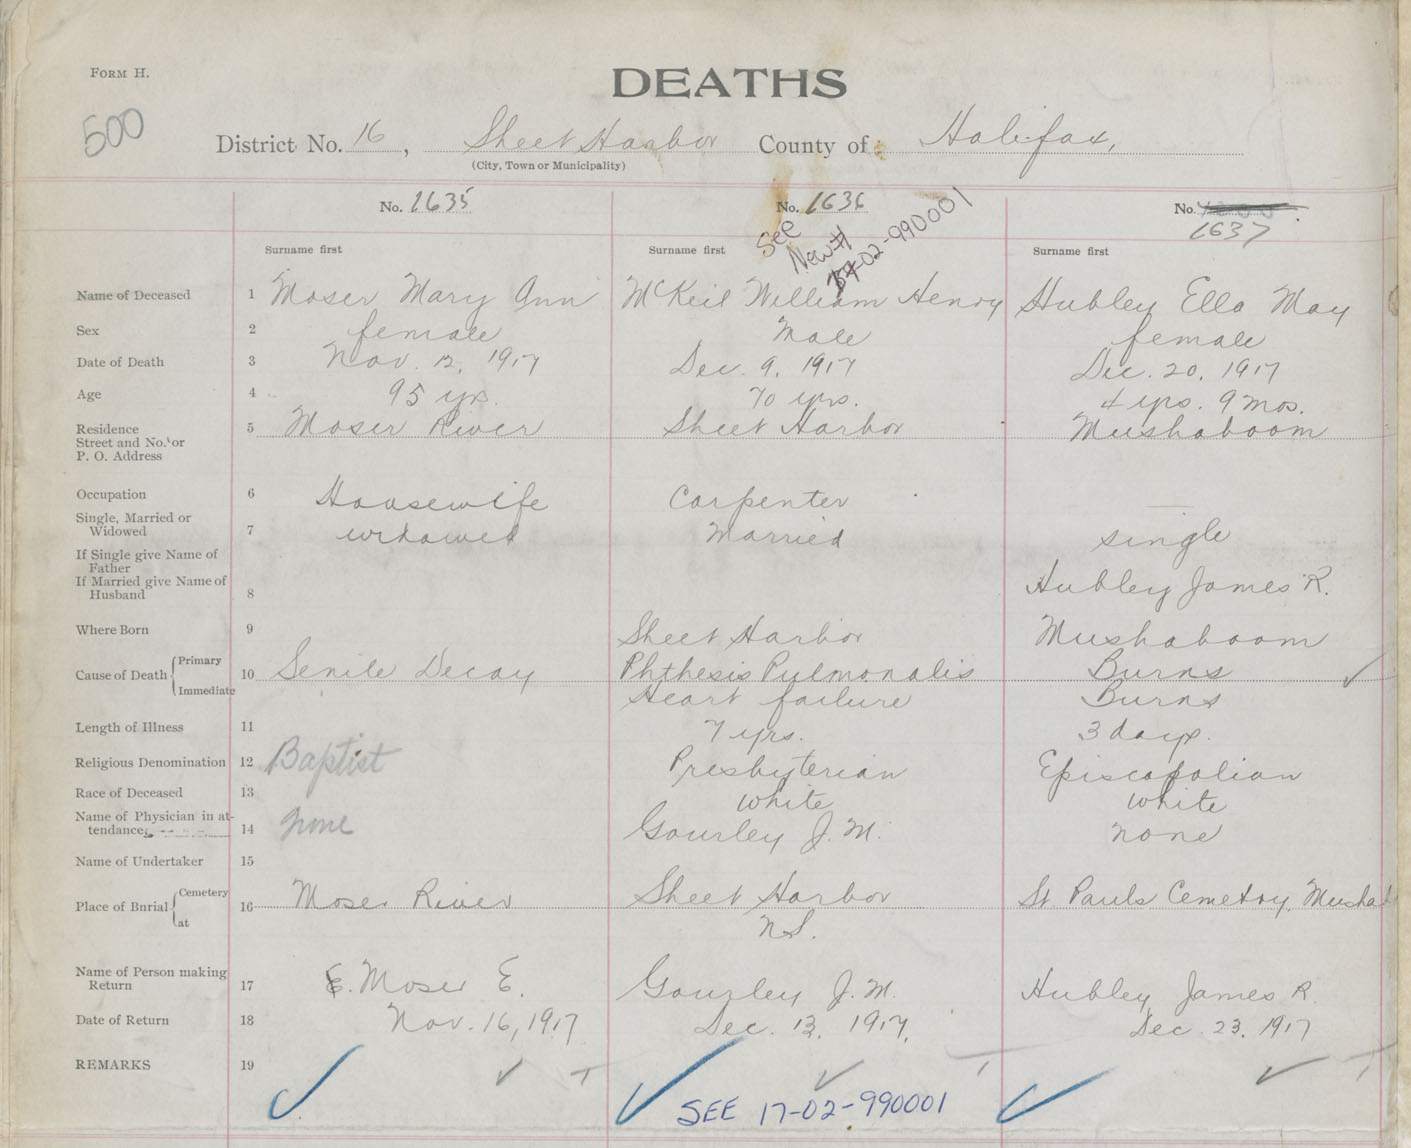 FORM H.
DEATHS
500
District No. 16, Sheet Harbor County of Halifax,
(City, Town or Municipality)
No. 1635 No. 1636 No.
1637
See
New #
17-02-990001
Surname first Surname first Surname first
Name of Deceased 1 Moser Mary Ann McKeil William Henry Hubley Ella May
Sex 2 female Male female
Date of Death 3 Nov. 12, 1917 Dec. 9, 1917 Dec. 20, 1917
Age 4 95 yrs. 70 yrs. 4 yrs. 9 mos.
Residence 5 Moser River Sheet Harbor Mushaboom
Street and No. or
P. O. Address
Occupation 6 Housewife Carpenter
Single, Married or
Widowed 7 widowed Married single
If Single give Name of
Father
If Married give Name of Hubley James R.
Husband 8
Where Born 9 Sheet Harbor Mushaboom
Cause of Death { Primary 10 Senile Decay Phthesis Pulmonalis Burns
Immediate Heart failure Burns
Length of Illness 11 7 yrs. 3 days.
Religious Denomination 12 Baptist Presbyterian Episcopalian
Race of Deceased 13 White White
Name of Physician in at-
tendance 14 None Gourley J. M. none
Name of Undertaker 15
Place of Burial { Cemetery 16 Moser River Sheet Harbor St. Pauls Cemetry, Mushab
at N.S.
Name of Person making
Return 17 E. Moser E. Gourley J. M. Hubley James R.
Date of Return 18 Nov. 16, 1917 Dec. 13, 1917, Dec. 23, 1917
REMARKS 19
SEE 17-02-990001